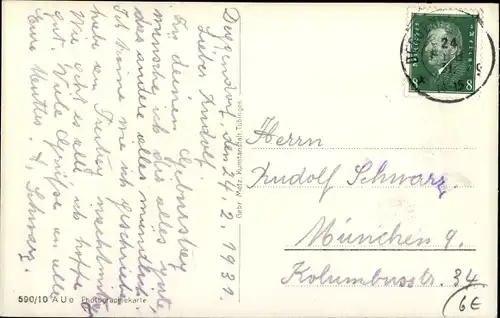 Deggendorf, den 24. 2. 1931.
Lieber Rudolf!
Zu deinem Geburtstag
wünsche ich dir alles gute,
das andere alles mündlich.
Ich komme wie ich geschrieben
habe am Freitag nachmittag
Wie geht es alle, ich hoffe
gut. Viele Grüße an alle
Eure Mutter. A. Schwarz.
Gebr. Metz, Kunstanstalt, Tübingen
24
8 8
Herrn
Rudolf Schwarz,
München 9.
Kolumbusstr. 34
6E
590/10 A U o Photographiekarte